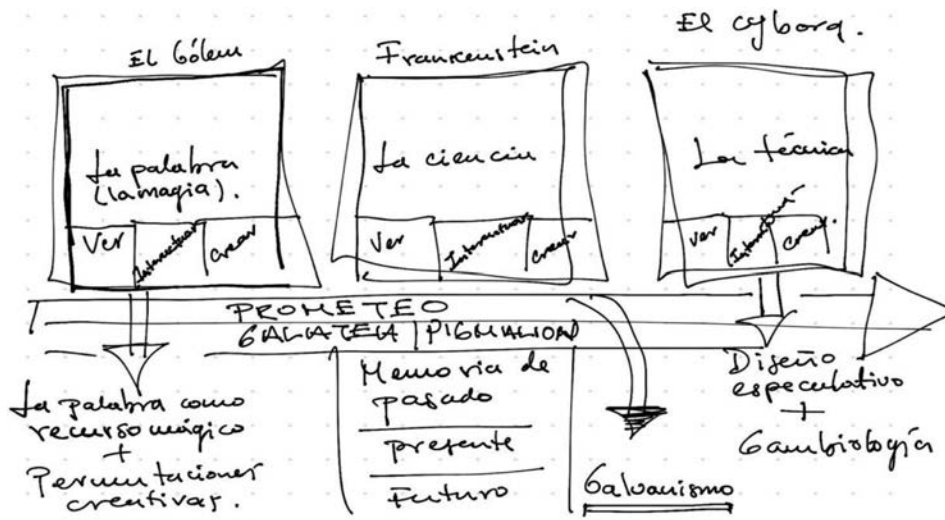 El Gólem
Frankenstein
El cyborg.
La palabra
(la magia).
Ver
Interactuar
Crear
La ciencia
Ver
Interactuar
Crear
La técnica
Ver
Crear
PROMETEO
GALATEA | PIGMALION
La palabra como
recurso mágico
+
Permutaciones
creativas.
Memoria de
pasado
presente
Futuro
Galvanismo
Diseño
especulativo
+
Gambiología